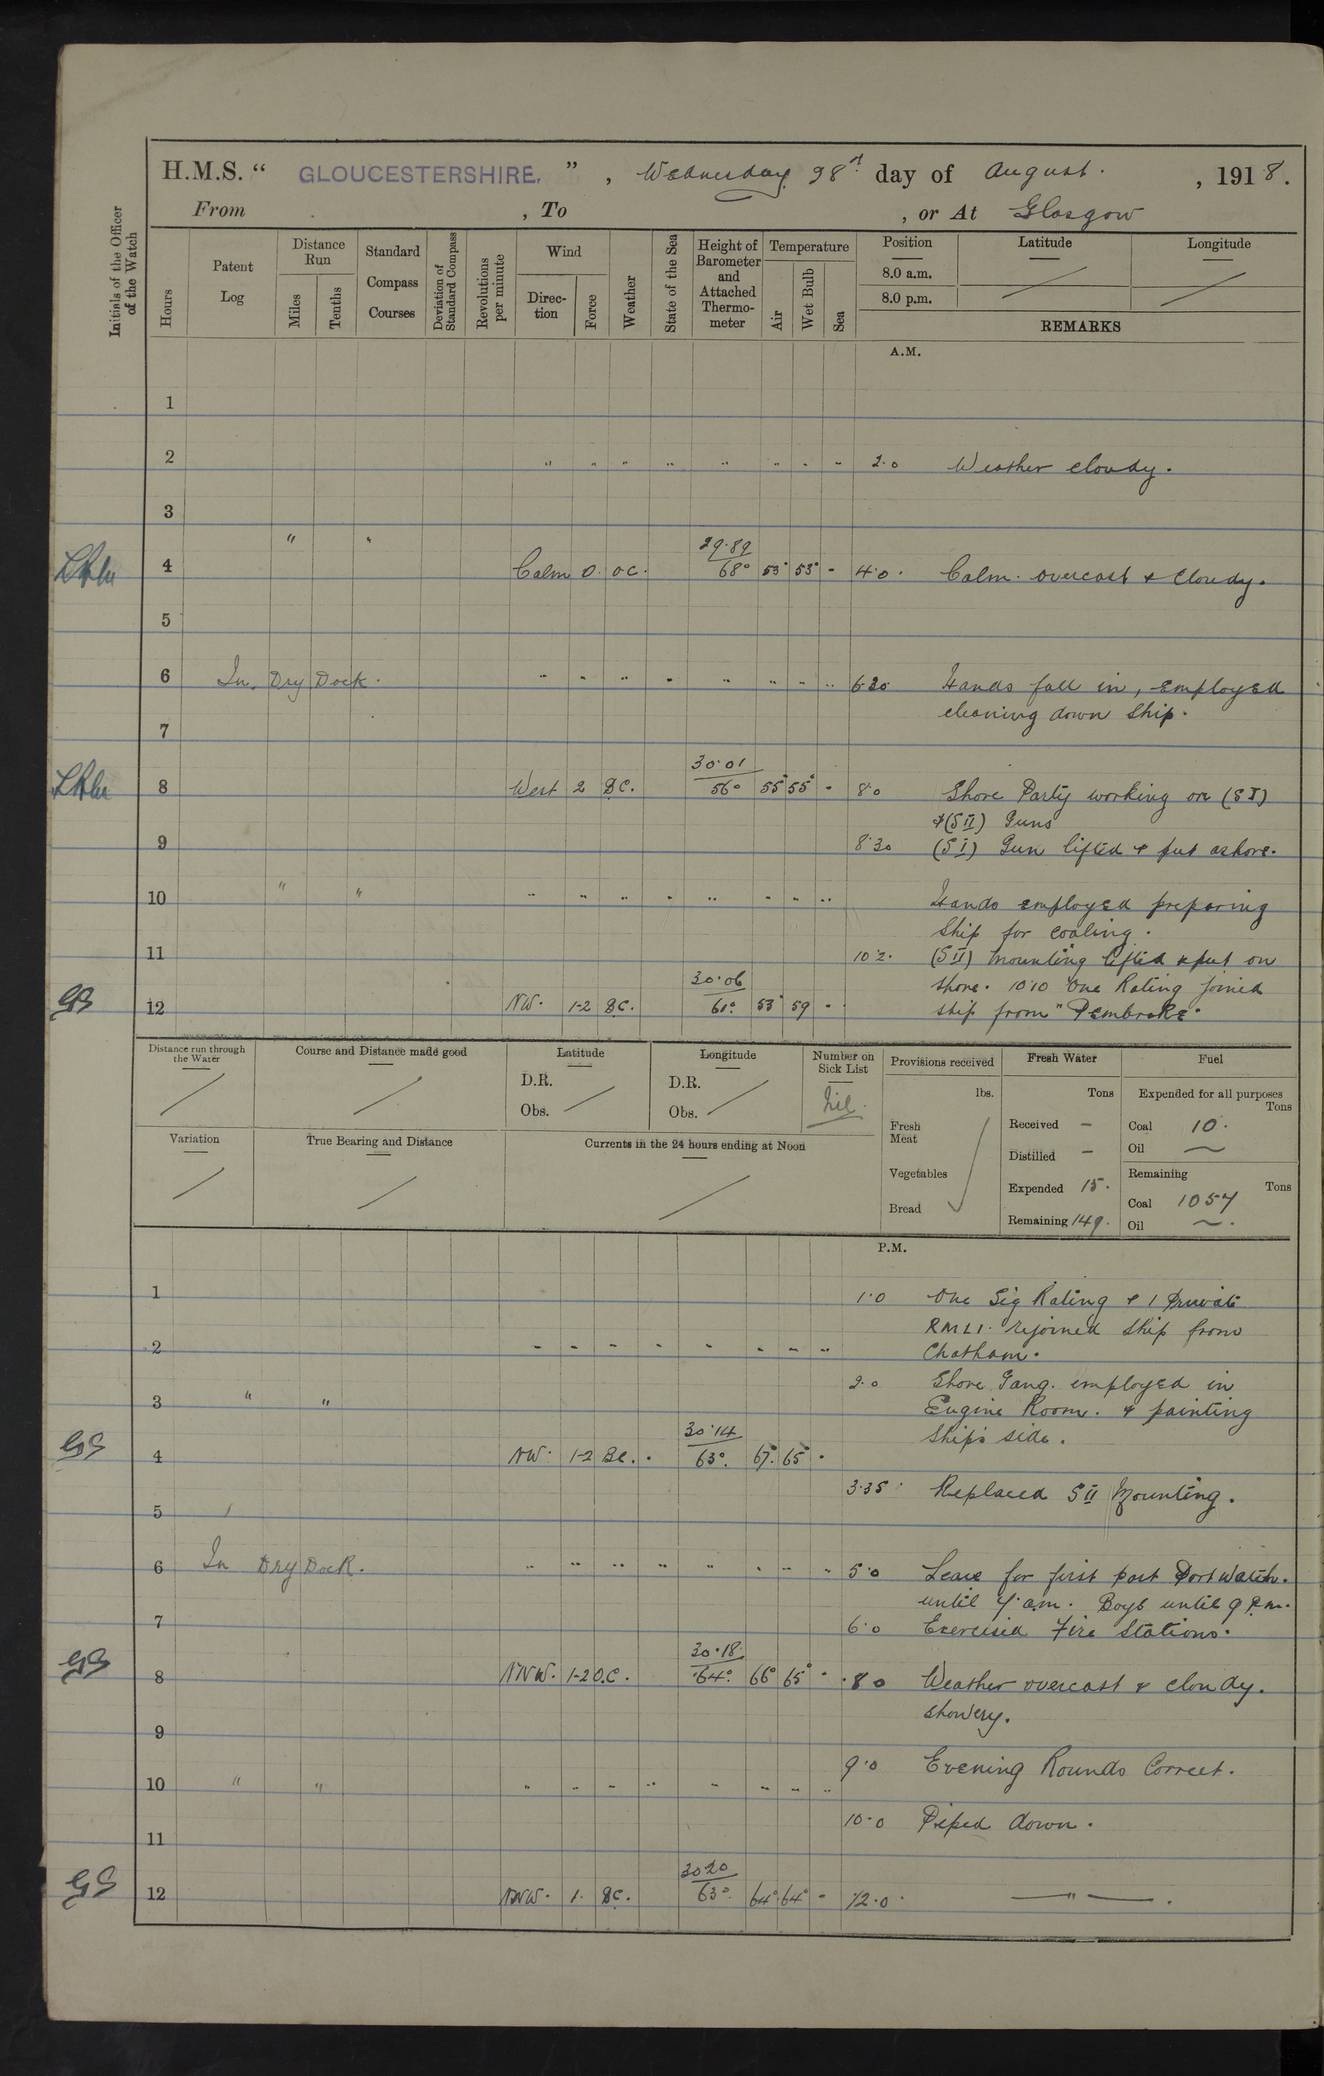 H.M.S. “ GLOUCESTERSHIRE. ” , Wednesday 28th day of August. , 1918.
From , To , or At Glasgow
Initials of the Officer of the Watch
Hours
Patent Log
Distance Run
Miles
Tenths
Standard Compass Courses
Deviation of Standard Compass
Revolutions per minute
Wind
Direc-tion
Force
Weather
State of the Sea
Height of Barometer and Attached Thermo-meter
Temperature
Air
Wet Bulb
Sea
Position Latitude Longitude
8.0 a.m.
8.0 p.m.
REMARKS
A.M.
1
2 " " " " " " " " 2.0 Weather cloudy.
3
" "
29.89
4 Calm 0. oc. 68° 53° 53° - 4.0. Calm. overcast & Cloudy.
5
6 In Dry Dock. " " " " " " " " 6.30 Hands fall in, employed
cleaning down Ship.
7
30.01
8 West 2 BC. 56° 55° 55° - 8.0 Shore Party working on (S I)
& (S II) Guns
9 8.30 (S I) Gun lifted & put ashore.
10 " " " " " " " " " " Hands employed preparing
Ship for coaling.
11 10.2. (S II) Mounting lifted & put on
30.06
shore. 10.10 One Rating joined
12 NW. 1-2 BC. 61°. 53° 59 - ship from "Pembroke.
Distance run through the Water
Course and Distance made good
Latitude
D.R.
Obs.
Longitude
D.R.
Obs.
Number on Sick List
Nil.
Provisions received
lbs.
Fresh Meat
Vegetables
Bread
Fresh Water
Tons
Received -
Distilled -
Expended 15.
Remaining 149.
Fuel
Expended for all purposes
Tons
Coal 10.
Oil ~
Remaining
Tons
Coal 1057
Oil ~.
Variation
True Bearing and Distance
Currents in the 24 hours ending at Noon
P.M.
1 1.0 One Sig Rating & 1 Private
RMLI. rejoined Ship from
2 " " " " " " " " Chatham.
2.0 Shore Gang. employed in
3 " " Engine Room. & painting
30.14
Ships side.
GS 4 NW. 1-2 BC. . 63°. 67°. 65° .
3.35. Replaced S II Mounting.
5
6 In Dry Dock. " " " " " " " " 5.0 Leave for first part Port Watch.
until 7. a.m. Boys until 9 P.m.
7 6.0 Exercised Fire Stations.
30.18.
GS 8 NNW. 1-2 O.C. 64°. 66° 65° - 8.0 Weather overcast & cloudy.
showery.
9
9.0 Evening Rounds Correct.
10 " " " " " " " " " "
10.0 Piped down.
11
30.20
GS 12 NNW. 1. BC. 63°. 64°. 64° - 12.0. — " — .